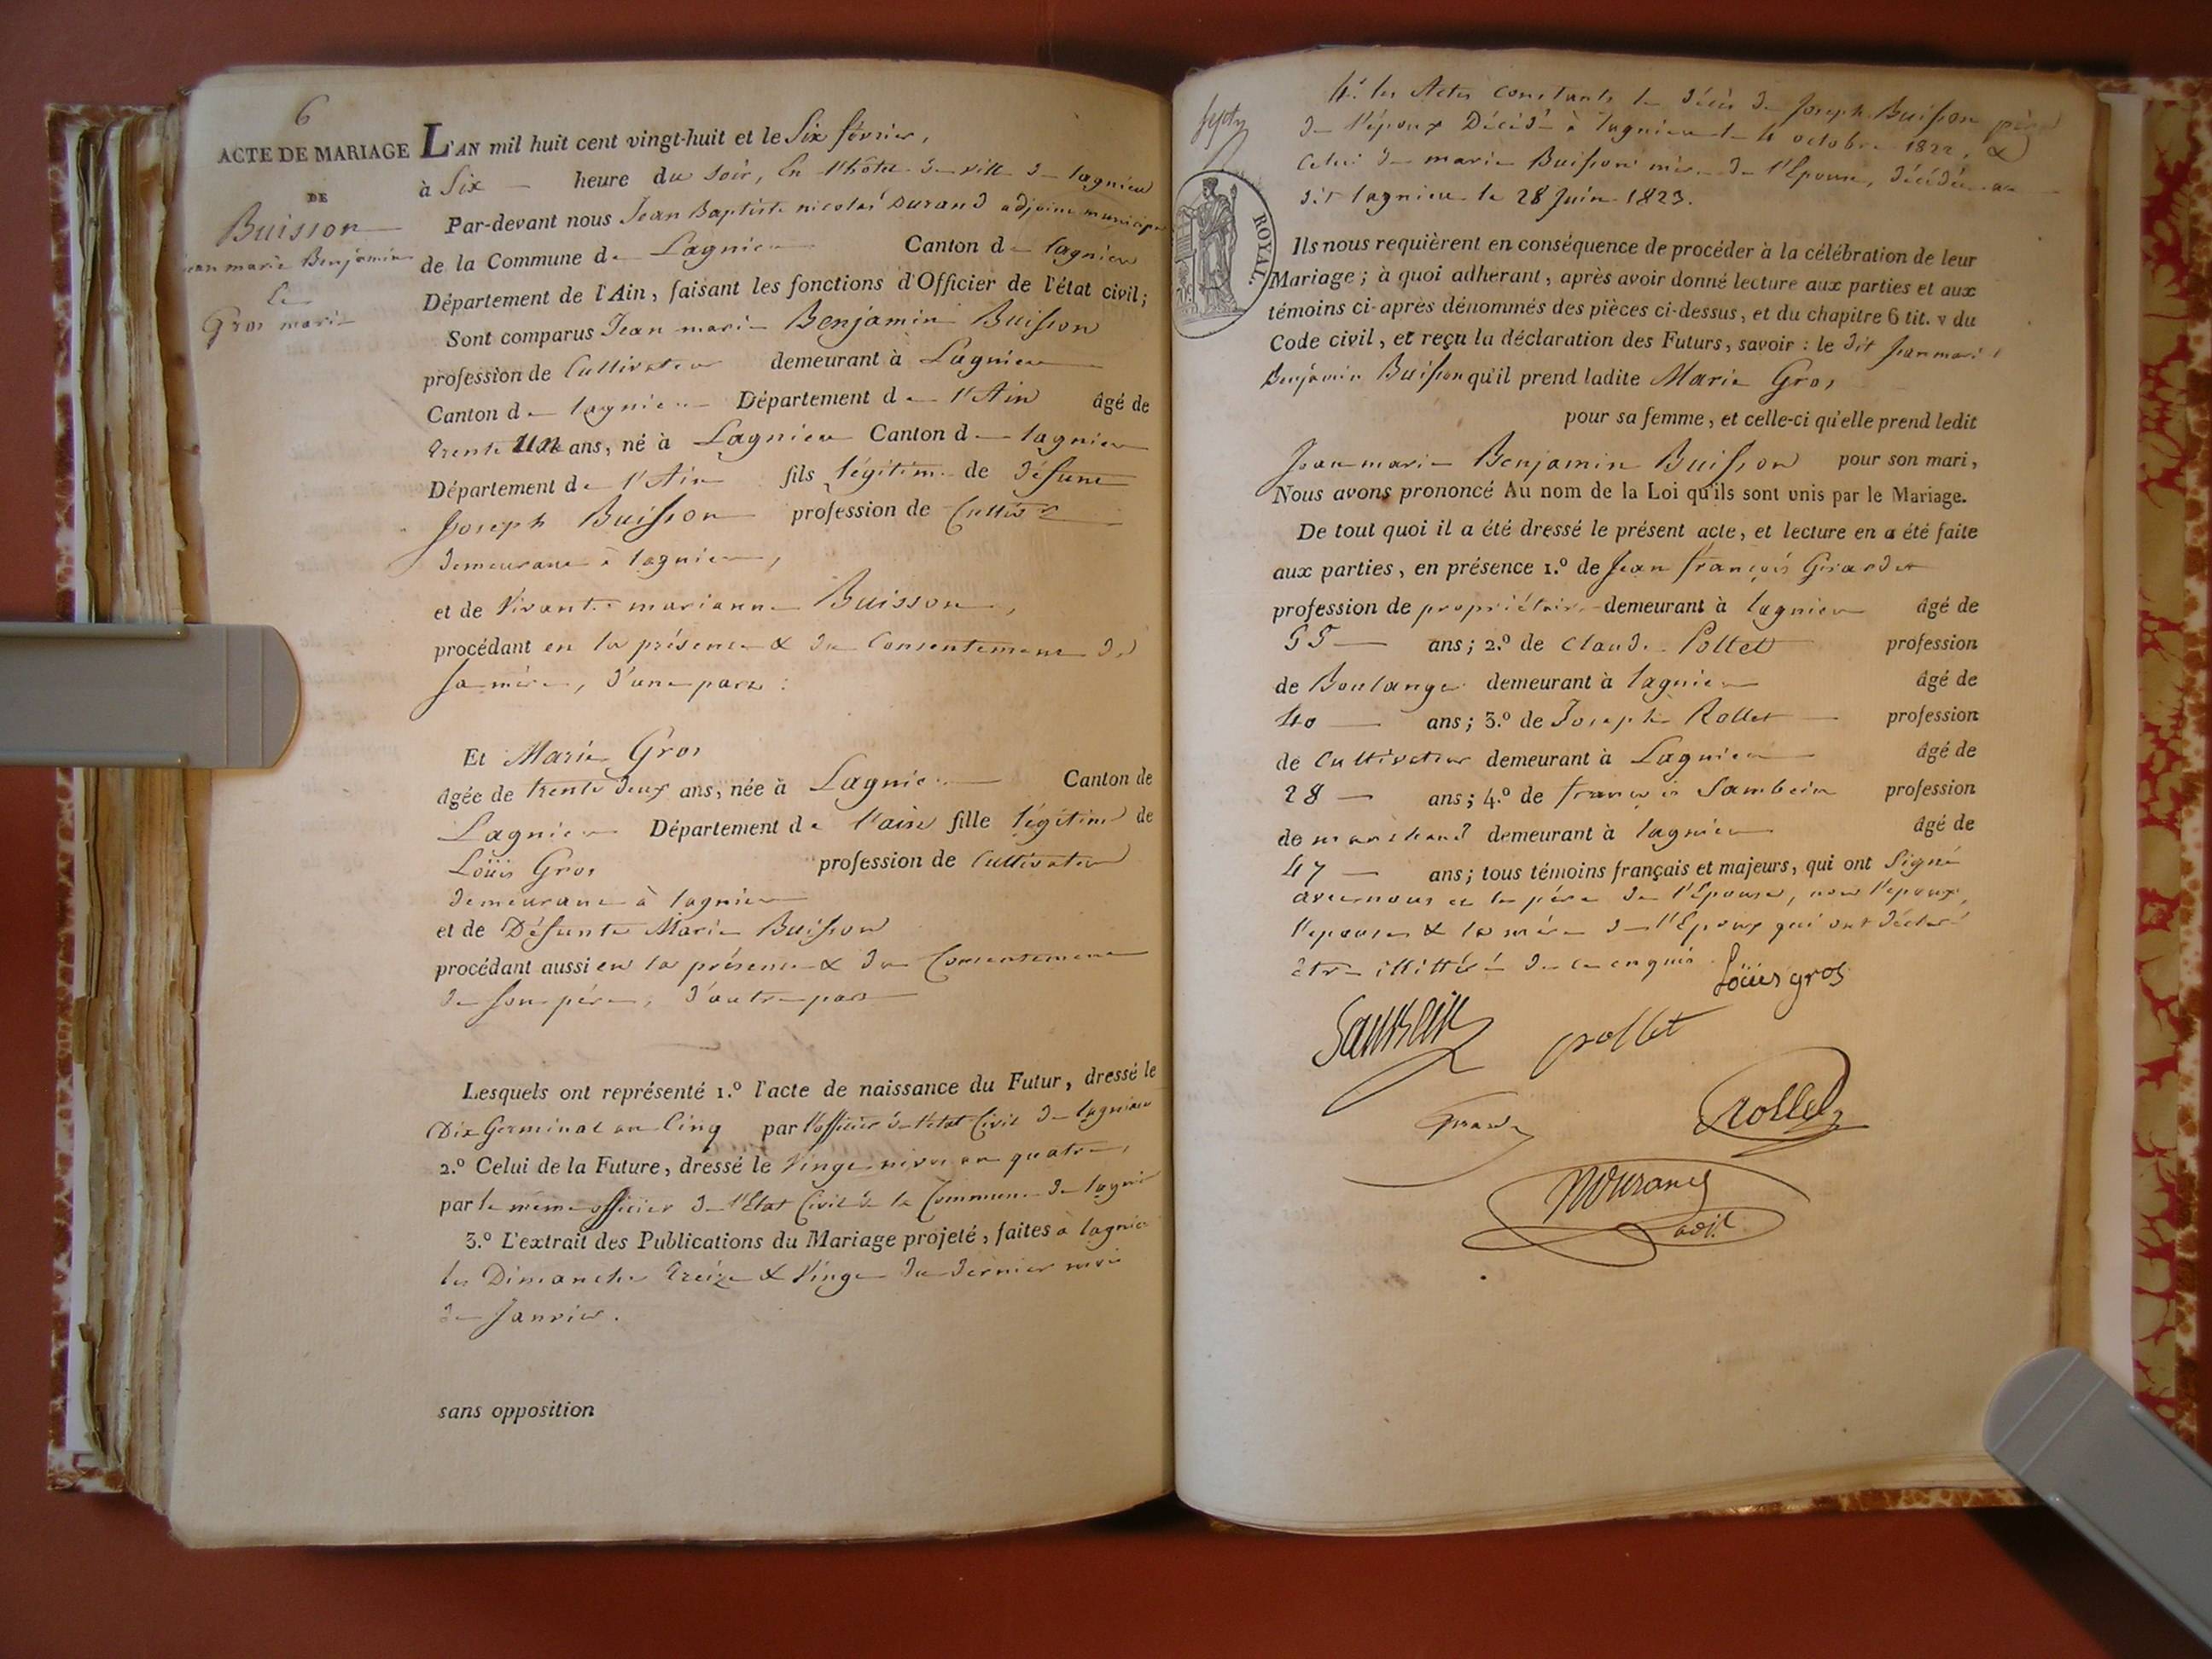 6
ACTE DE MARIAGE
DE
Buisson
Jean marie Benjamin
Et
Gros marie
L'AN mil huit cent vingt-huit et le Six février,
à Six heure du soir, En l'hôtel de ville de lagnieu
Par-devant nous Jean Baptiste nicolas Durand adjoint municipal
de la Commune de Lagnieu Canton de lagnieu
Département de l'Ain, faisant les fonctions d'Officier de l'état civil;
Sont comparus Jean marie Benjamin Buisson
profession de Cultivateur demeurant à Lagnieu
Canton de lagnieu Département de l'Ain âgé de
trente un ans, né à Lagnieu Canton de lagnieu
Département de l'Ain fils légitime de défunt
Joseph Buisson profession de Cultivr
demeurant à lagnieu,
et de Vivante marianne Buisson,
procédant en la présence & du Consentement de
sa mère, d'une part:
Et Marie Gros
âgée de trente deux ans, née à Lagnieu Canton de
Lagnieu Département de l'ain fille légitime de
Loüis Gros profession de Cultivateur
demeurant à lagnieu
et de Défunte Marie Buisson
procédant aussi en la présence & du Consentement
de son père, d'autre part
Lesquels ont représenté 1.º l'acte de naissance du Futur, dressé le
Dix Germinal an Cinq par l'officier de l'état Civil de lagnieu
2.º Celui de la Future, dressé le Vingt nivose an quatre,
par le même officier de l'Etat Civil de la Commune de lagnieu
3.º L'extrait des Publications du Mariage projeté, faites à lagnieu
les Dimanches treize & Vingt du dernier mois
de Janvier.
sans opposition
ROYAL.
4.º les Actes constants le décès de Joseph Buisson père
de l'époux Décédé à lagnieu le 4 octobre 1822, &
Celui de marie Buisson mère de l'Epouse, décédée au
dit lagnieu le 28 Juin 1823.
Ils nous requièrent en conséquence de procéder à la célébration de leur
Mariage; à quoi adhérant, après avoir donné lecture aux parties et aux
témoins ci-après dénommés des pièces ci-dessus, et du chapitre 6 tit. v du
Code civil, et reçu la déclaration des Futurs, savoir: le dit Jean marie
Benjamin Buisson qu'il prend ladite Marie Gros
pour sa femme, et celle-ci qu'elle prend ledit
Jean marie Benjamin Buisson pour son mari,
Nous avons prononcé Au nom de la Loi qu'ils sont unis par le Mariage.
De tout quoi il a été dressé le présent acte, et lecture en a été faite
aux parties, en présence 1.º de Jean françois Girardet
profession de propriétaire demeurant à lagnieu âgé de
55 ans; 2.º de Claude Pollet profession
de Boulanger demeurant à lagnieu âgé de
40 ans; 3.º de Joseph Rollet profession
de Cultivateur demeurant à Lagnieu âgé de
28 ans; 4.º de françois Sambein profession
de marchand demeurant à lagnieu âgé de
47 ans; tous témoins français et majeurs, qui ont Signé
avec nous et le père de l'Epouse, non l'epoux,
l'epouse & la mère de l'Epoux qui ont déclaré
être illittéré de ce enquis
Loüis gros
Sambein
pollet
Girardet
Rollet
NDurand
adj.t